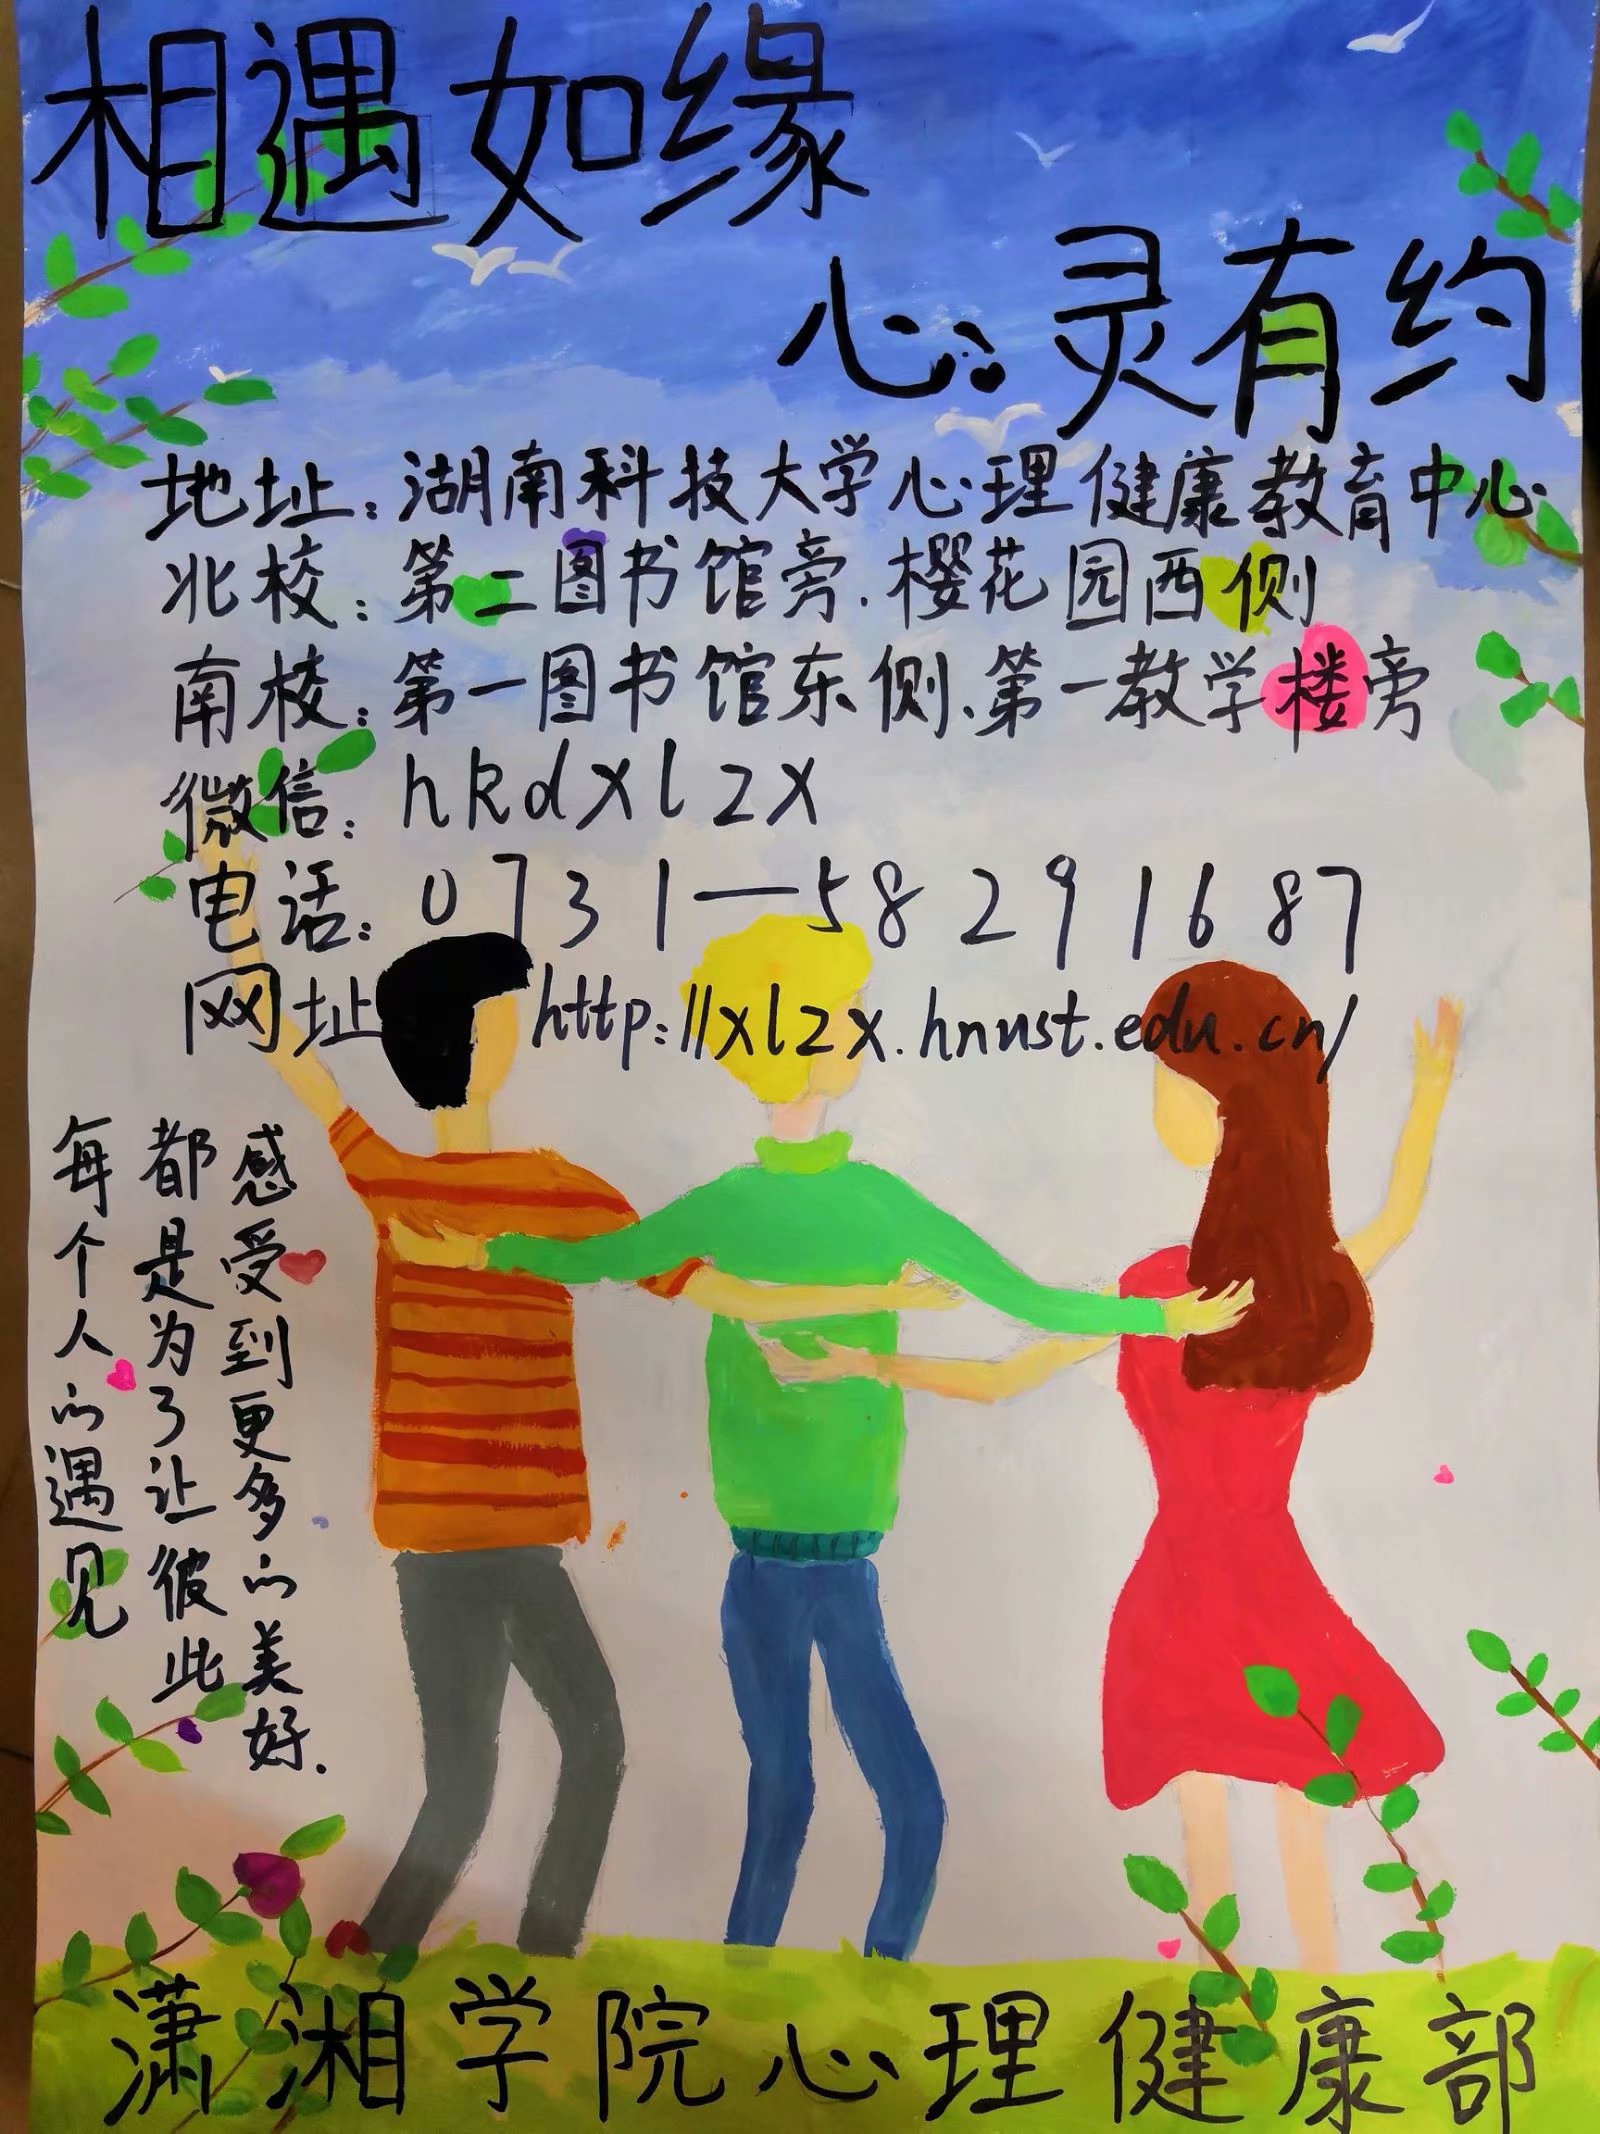 相遇如缘
心灵有约
地址：湖南科技大学心理健康教育中心
北校：第二图书馆旁.樱花园西侧
南校：第一图书馆东侧、第一教学楼旁
微信：hkdxlzx
电话：0731—58291687
网址 http://xlzx.hnust.edu.cn/
每个人的遇见
都是为了让彼此
感受到更多的美好.
潇湘学院心理健康部